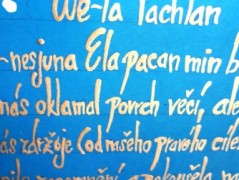 We-la lachlan
-nesjuna Ela pacan min b
nás oklamal povrch věcí, ale
ás zdržuje (od našeho pravého cíle